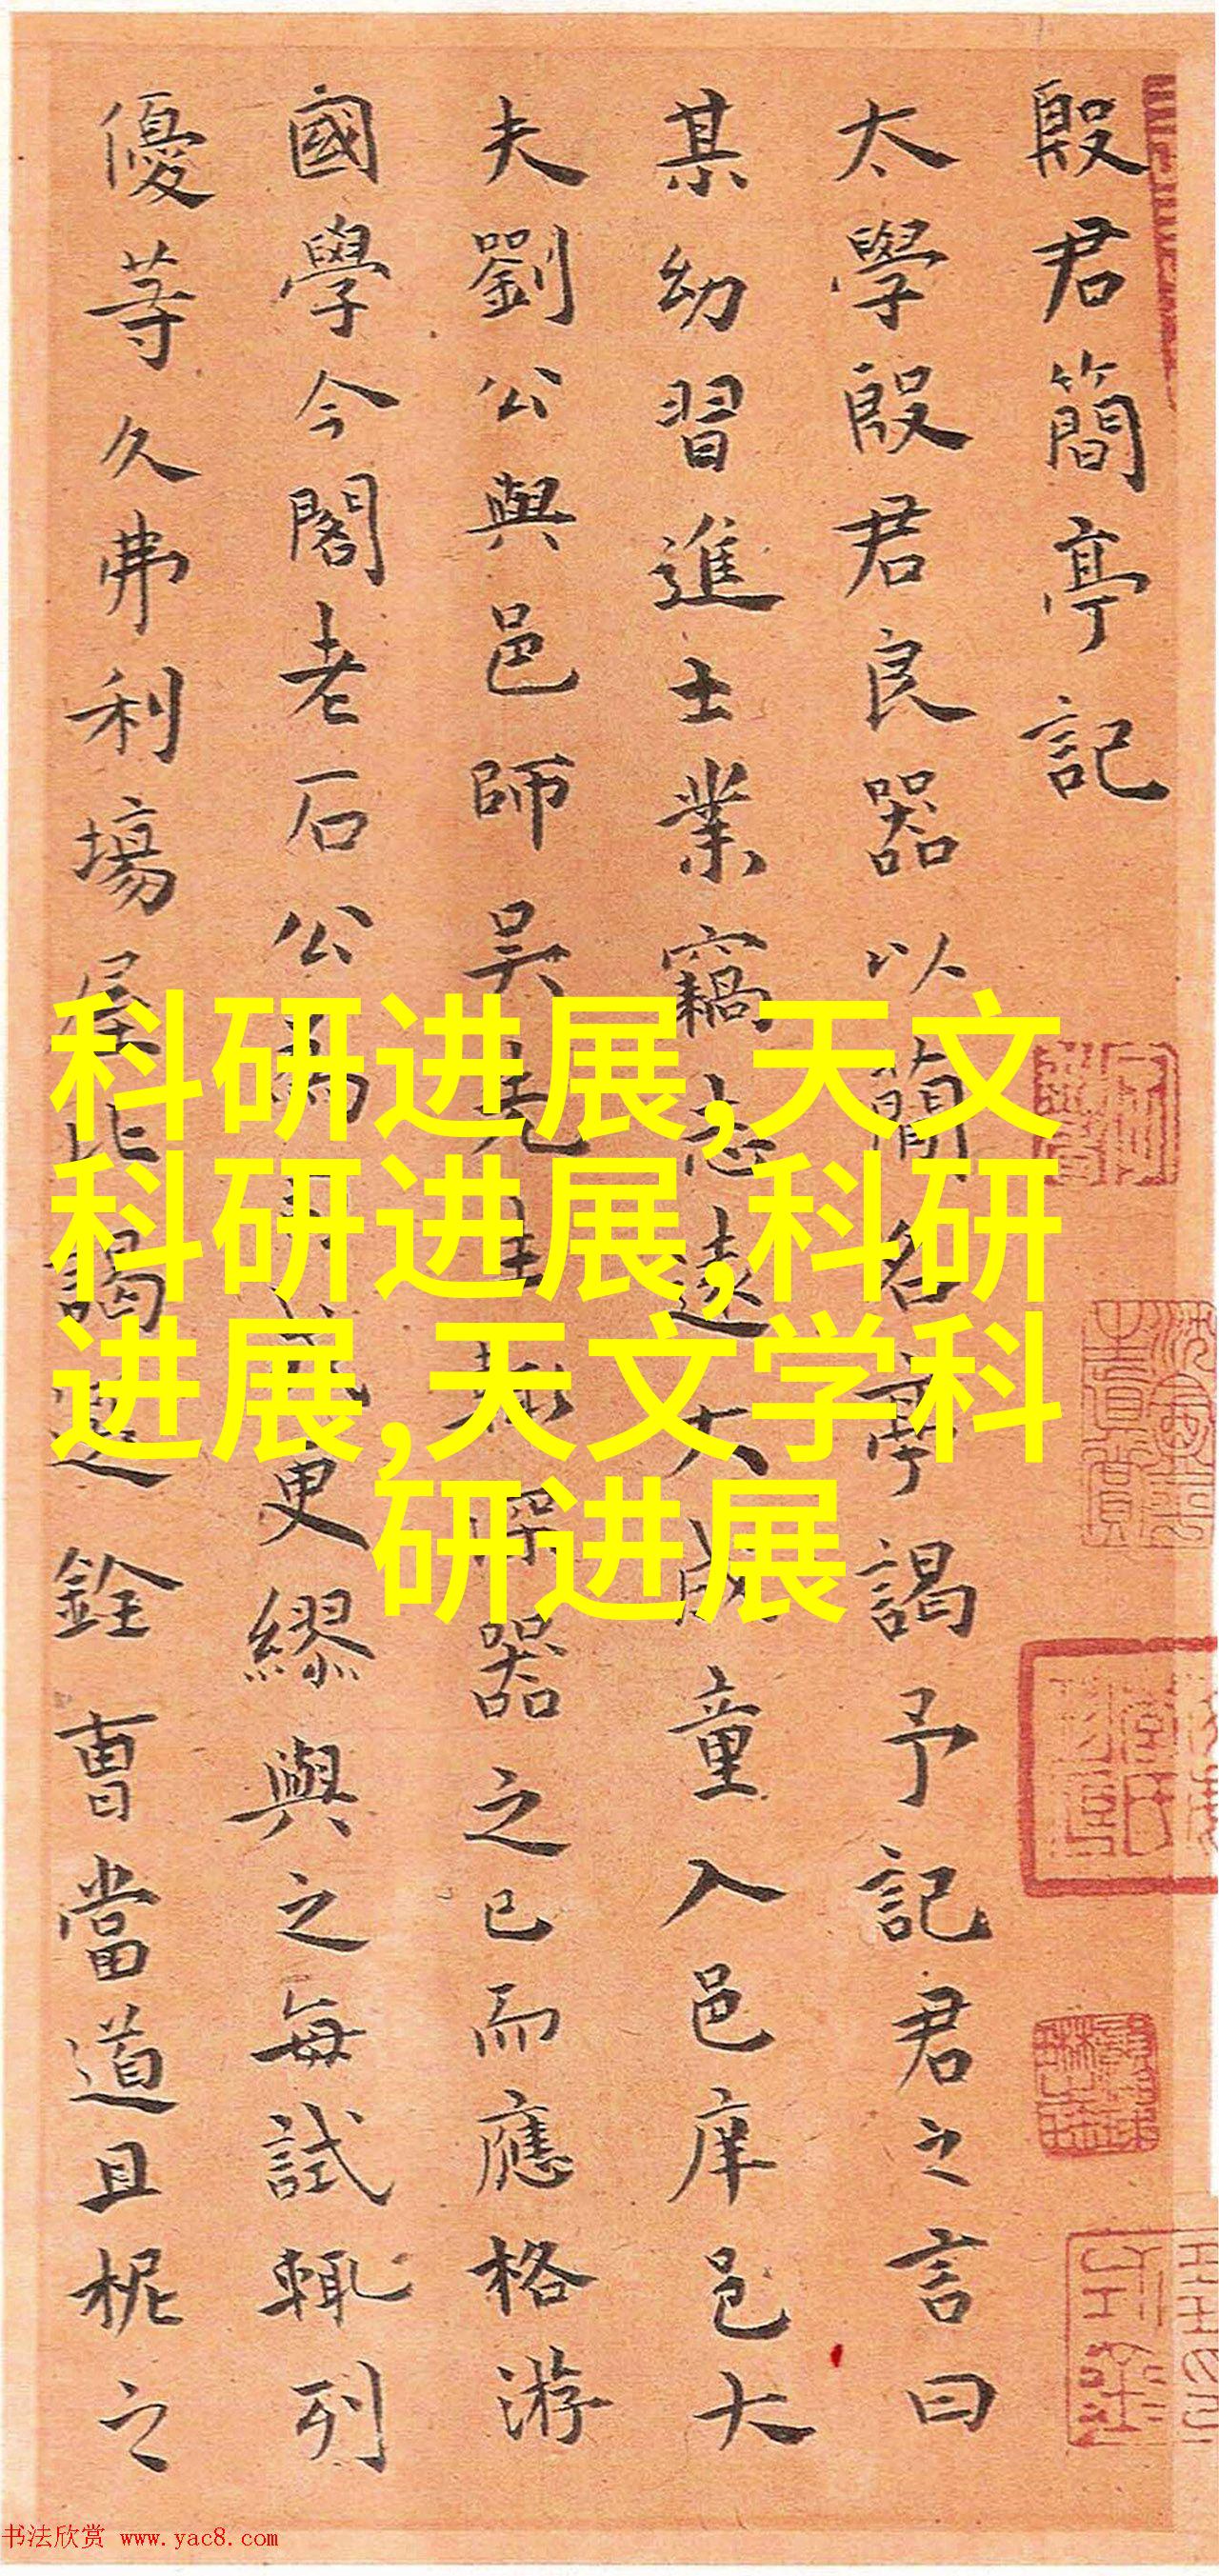 殷君簡亭記
太學殷君良器以簡名亭謁予記君之言曰
某幼習進士業竊志遠大成童入邑庠邑大
夫劉公與邑師吴先生 深器之已而應格游
國學今閣老石公為 更繆與之每試輒列
優等久弗利場屋比謁選銓曹當道且柅之
科研进展,天文
科研进展,科研
进展,天文学科
研进展
书法欣赏 www.yac8.com